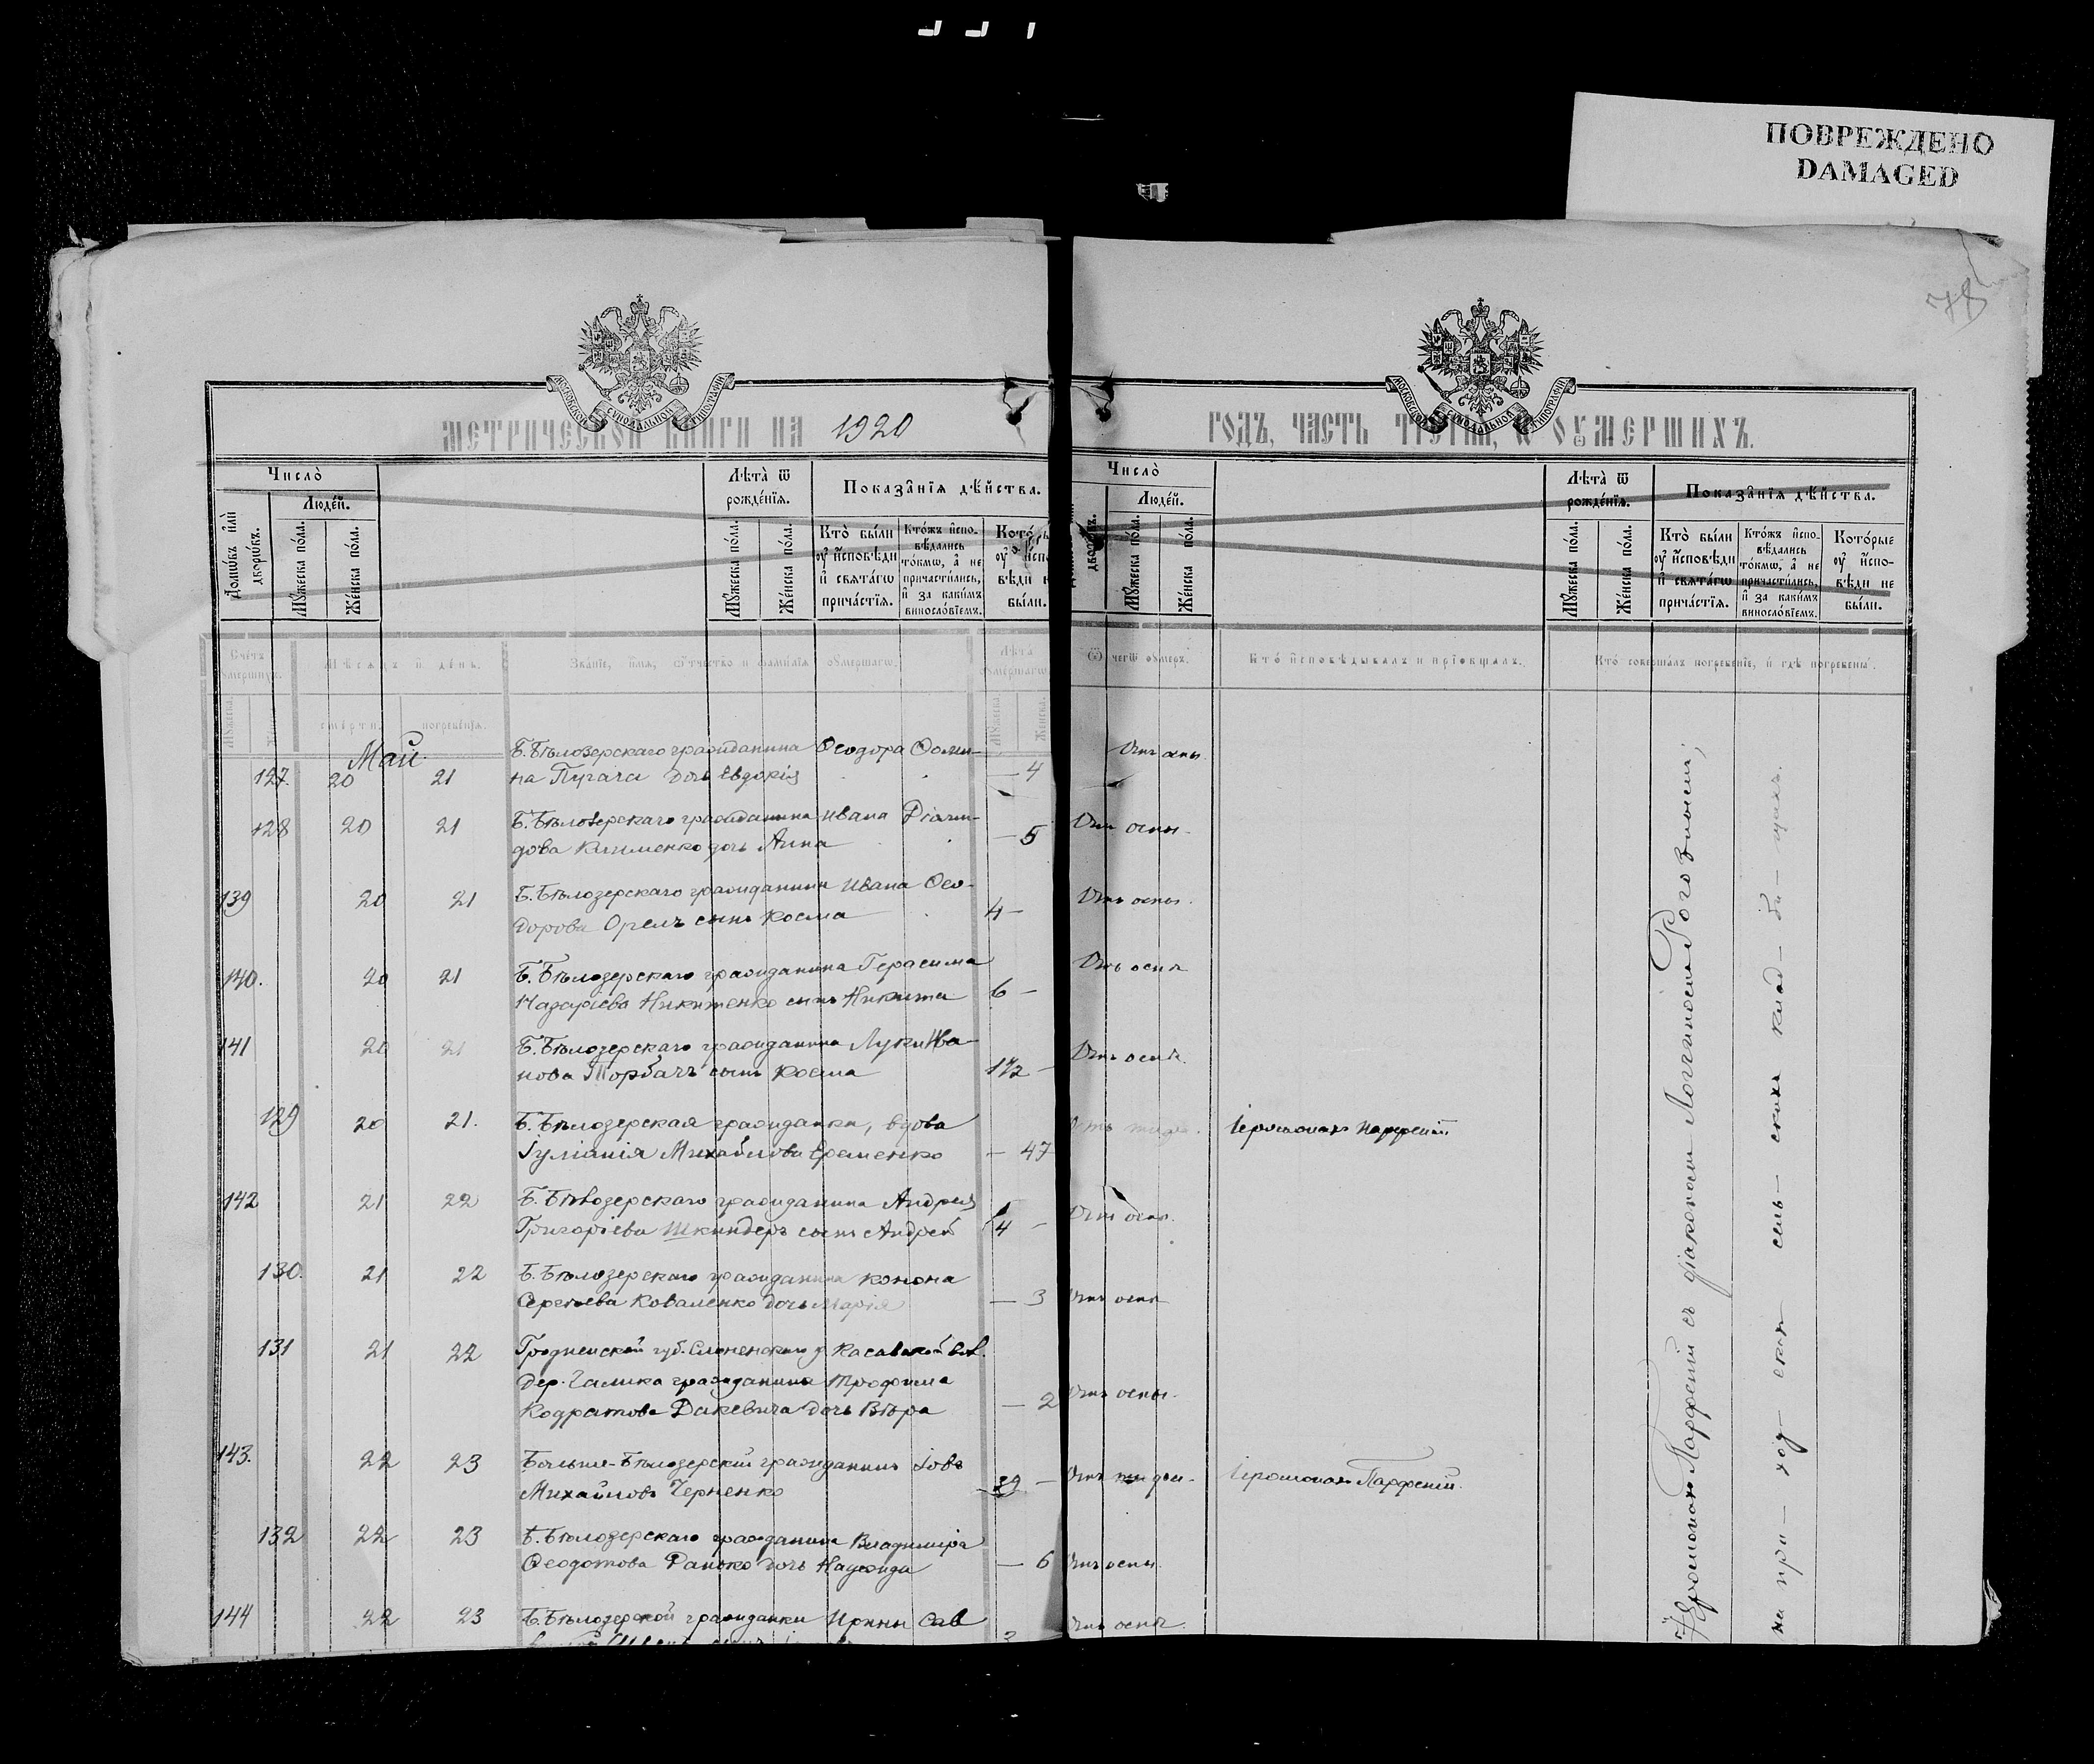 ПОВРЕЖДЕНО
DAMAGED
78
МОСКОВСКОЙ СУНОДАЛЬНОЙ ТИПОГРАФІИ
МОСКОВСКОЙ СУНОДАЛЬНОЙ ТИПОГРАФІИ
МЕТРИЧЕСКОЙ КНИГИ НА 1920
ГОДЪ, ЧАСТЬ ТРЕТІЯ, Ѡ ОУМЕРШИХЪ.
Число̀
Домѡ́въ и҆лѝ дворѡ́въ.
Люде́й.
Мꙋ́жеска по́ла.
Же́нска по́ла.
Лѣ́та ѿ рожде́нїѧ.
Мꙋ́жеска по́ла.
Же́нска по́ла.
Показа̂нїѧ дѣ́йства.
Кто̀ бы́ли оу҆ и҆сповѣ́ди и҆ свѧта́гѡ прича́стїѧ.
Кто́жъ и҆спо-
вѣ́дались
то́кмѡ, а҆ не
причасти́лись,
и҆ за каки́мъ
винословїемъ.
Число̀
Люде́й.
Мꙋ́жеска по́ла.
Же́нска по́ла.
Лѣ́та ѿ рожде́нїѧ.
Мꙋ́жеска по́ла.
Же́нска по́ла.
Показа̂нїѧ дѣ́йства.
Кто̀ бы́ли оу҆ и҆сповѣ́ди и҆ свѧта́гѡ прича́стїѧ.
Кто́жъ и҆спо-
вѣ́дались
то́кмѡ, а҆ не
причасти́лись,
и҆ за каки́мъ
винословїемъ.
Кото́рые оу҆ и҆спо-
вѣ́ди не бы́ли.
Счетъ оумершихъ.
Мѣсяцъ и день.
смерти
погребенія.
Званіе, имя, отчество и фамилія оумершаго.
Лѣта оумершаго.
Ѿ чегѡ оумеръ.
Кто исповѣдывалъ и пріобщалъ.
Кто совершалъ погребеніе, и гдѣ погребены.
Май
127. 20 21 Б. Бѣлозерскаго гражданина Ѳеодора Ѳоми-
на Пугача дочь Евдокія — 4 Отъ оспы.
128 20 21 Б. Бѣлозерскаго гражданина Ивана Діоми-
дова Клименко дочь Анна — 5 Отъ оспы.
139 20 21 Б. Бѣлозерскаго гражданина Ивана Ѳео-
дорова Орелъ сынъ Косма 4 — Отъ оспы.
140. 20 21 Б. Бѣлозерскаго гражданина Герасима
Назаріева Никитенко сынъ Никита 6 — Отъ оспы
141 20 21 Б. Бѣлозерскаго гражданина Луки Ива-
нова Торбачъ сынъ Косма 1½ — Отъ оспы.
129 20 21. Б. Бѣлозерская гражданка, вдова
Іуліанія Михайлова Еременко — 47 Отъ тифа. Іеромонахъ Парфеній
142 21 22 Б. Бѣлозерскаго гражданина Андрея
Григоріева Шкиндеръ сынъ Андрей 4 — Отъ оспы.
130. 21 22 Б. Бѣлозерскаго гражданина Конона
Сергѣева Коваленко дочь Марія — 3 Отъ оспы
131 21 22 Гродненской губ. Слонемскаго у. Косовской вол.
Дер. Галика гражданина Трофима
Кодратова Дакевича дочь Вѣра — 2 Отъ оспы.
143. 22 23 Больше-Бѣлозерскій гражданинъ Іовъ
Михайловъ Черненко 29 — Отъ тифа. Іеромонахъ Парфеній.
132 22 23 Б. Бѣлозерскаго гражданина Владиміра
Ѳеодотова Ранько дочь Надежда — 6 Отъ оспы.
144 22 23 Б. Бѣлозерской гражданки Ирины Сав
3 Отъ оспы.
Іеромонахъ Парфеній съ діакономъ Логгиномъ Роговымъ,
на при — ход — скомъ сель — скомъ клад — би — щѣ.